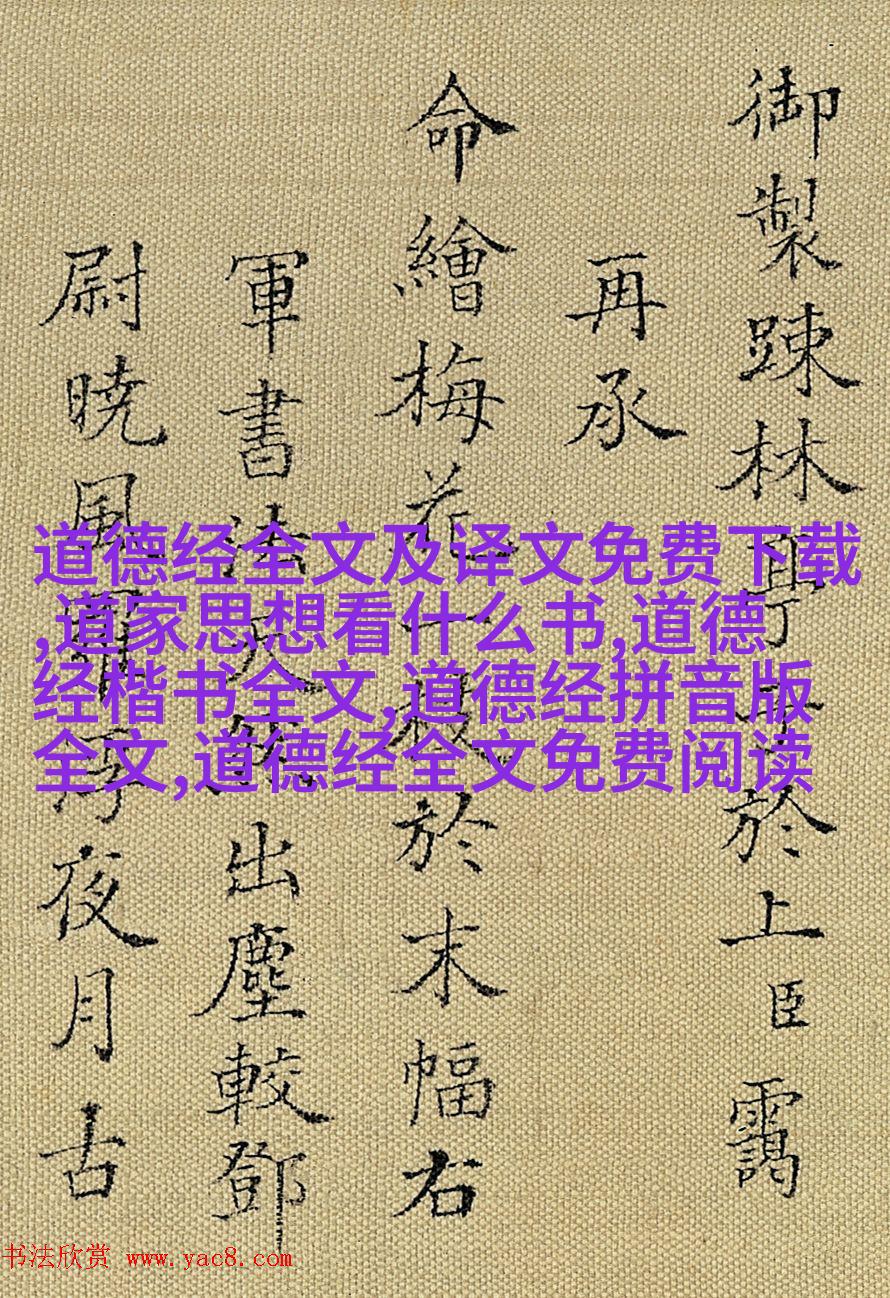 御製踈林於上臣靄
再承
命繪梅花一於末幅右
軍書法出塵較鄧
尉暁風夜月古
道德经全文及译文免费下载
,道家思想看什么书,道德
经楷书全文,道德经拼音版
全文,道德经全文免费阅读
书法欣赏 www.yac8.com